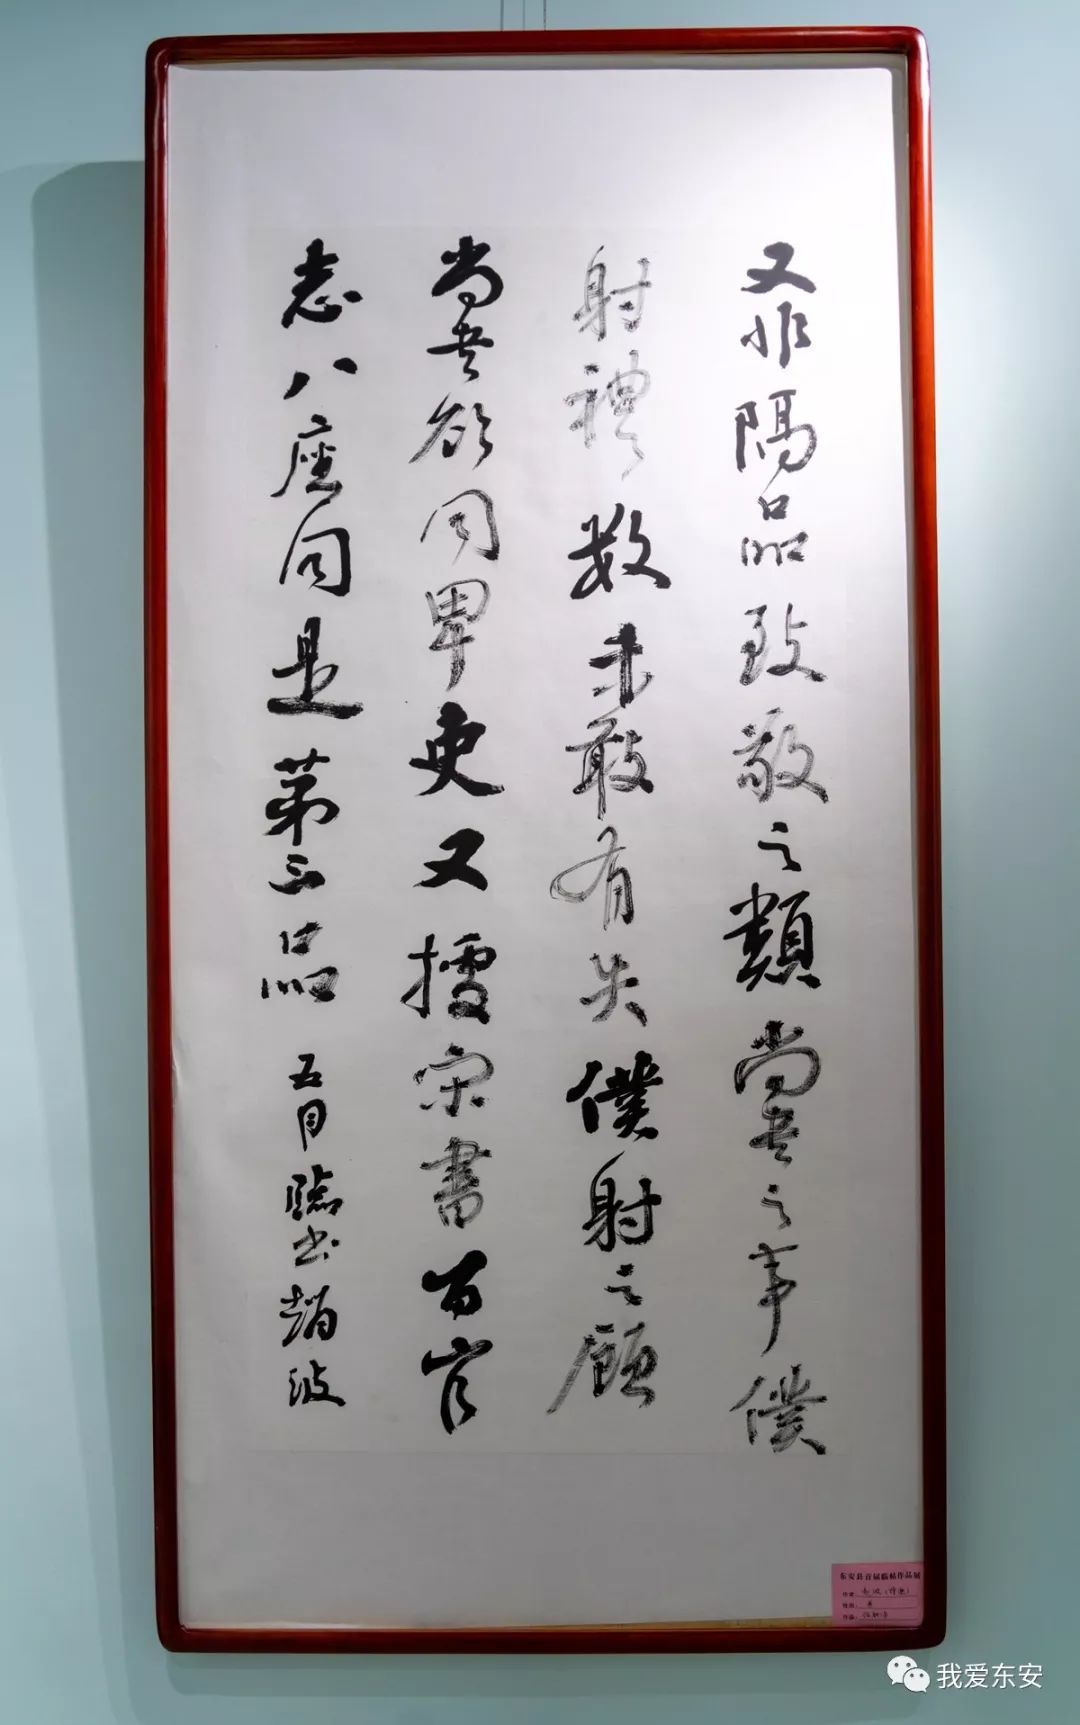 又非隔品致敬之類尚書之事僕
射禮數未敢有失僕射之顧
尚書欲同卑吏又據宋書百官
志八座同是第三品 五月臨書趙波
东安县首届临帖作品展
作者：
性别：男
作品：
我爱东安